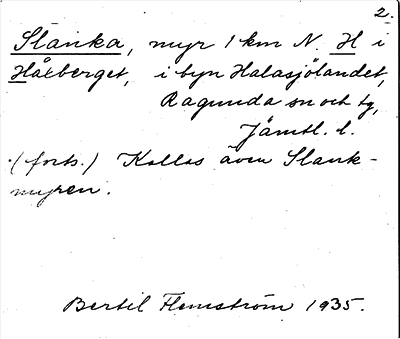 2.
Slanka, myr 1 km N. H i
Håxberget, i byn Halasjölandet,
Ragunda sn och tg,
Jämtl. l.
(forts.) Kallas även Slank-
myren.
Bertil Flemström 1935.